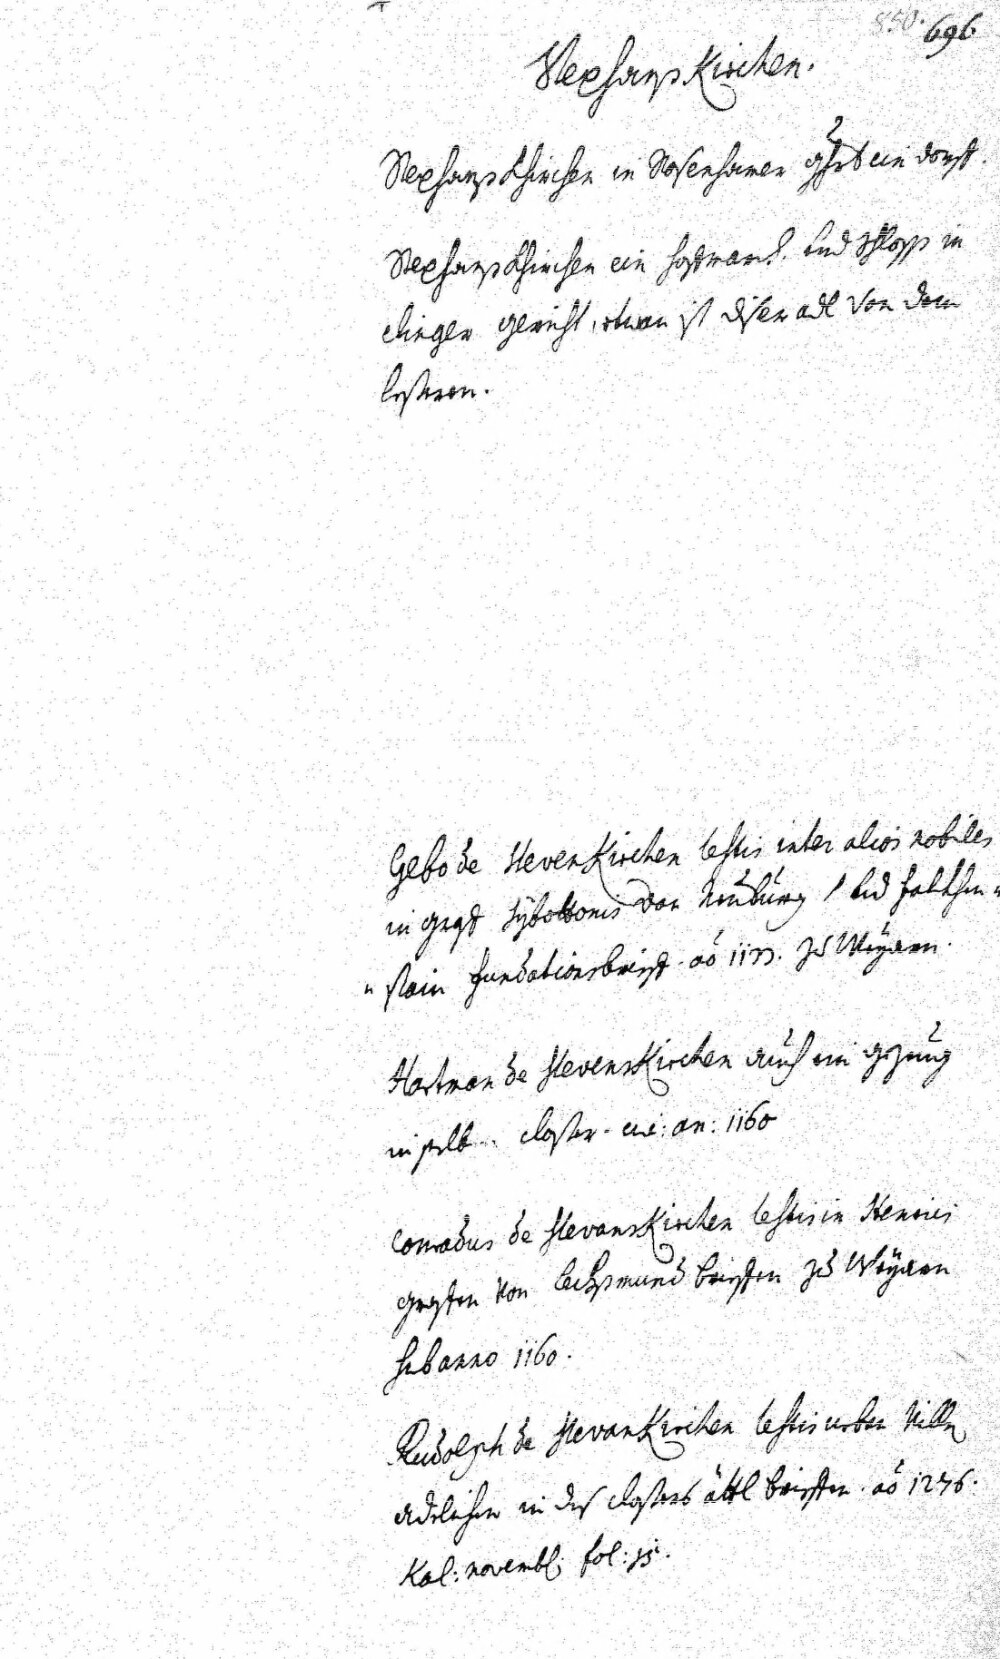 850. 696
Stephanskirchen.
Stephanskhirchen in Rosenhamer ghrt ein dorff.
Stephanskhirchen ein hofmarch. und schloss in
clinger gericht, etwan ist diser adl von dem
lesteren.
Gebo de Stevenkirchen testis inter alios nobiles
in graf Sybottonis von Neuburg / und falkhen
stain fundationsbrieff. ao 1133. zu Weyarn.
Hartman de Stevenskirchen auch ein gezeug
in selb closter. an: 1160
Conradus de Stevanskirchen testis in Henrici
graffen von lechsmund brieffen zu Weyarn
sub anno 1160.
Rudolph de Stevankirchen testis unter villen
adelichen in des closters ättl brieffen. ao 1276.
Kal: novembl: fol: 35.